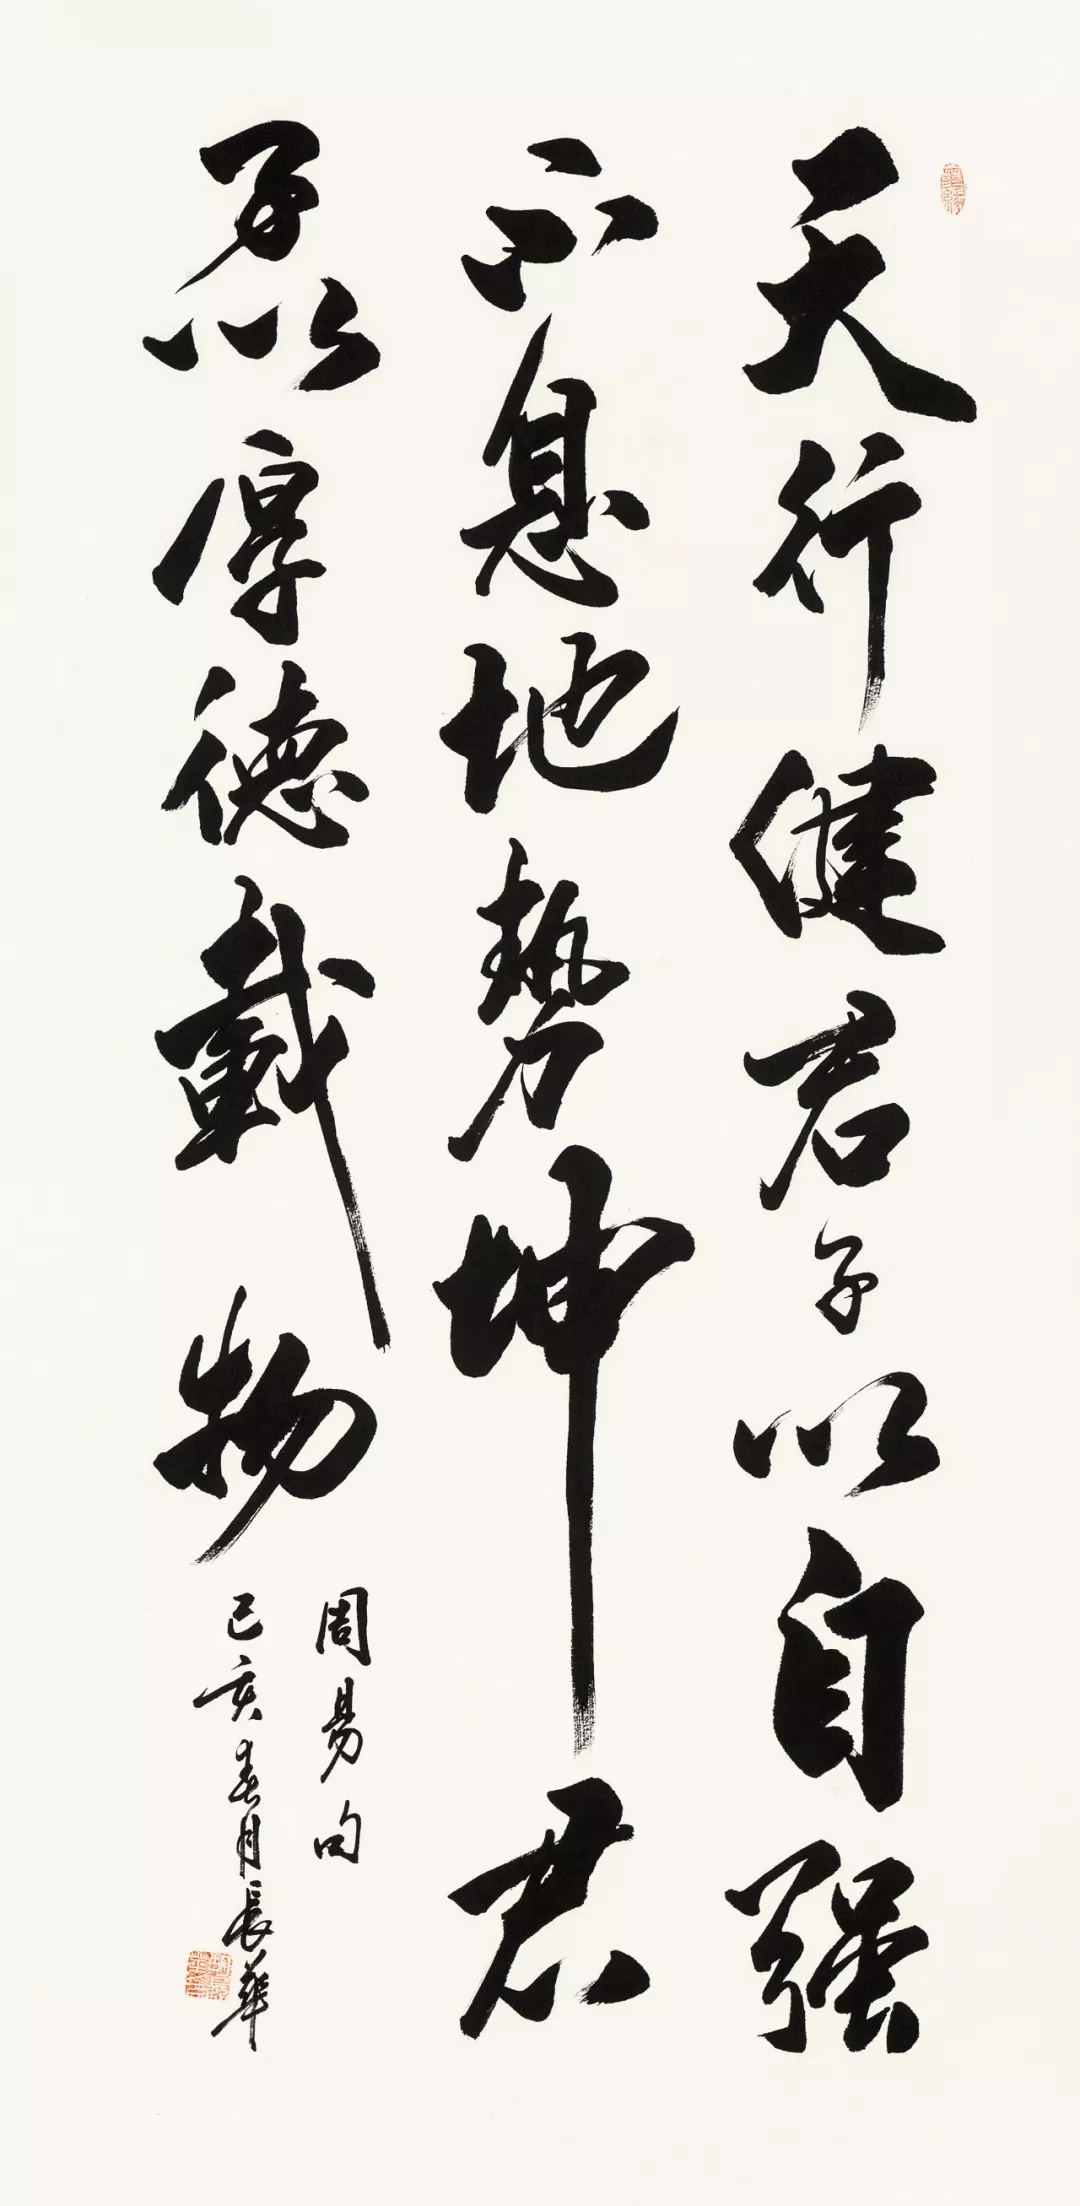 天行健君子以自强
不息地势坤君
子以厚德载物
周易句
己亥春月長華